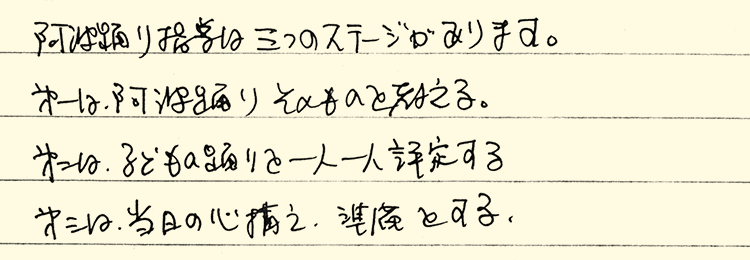 阿波踊り指導は三つのステージがあります。
第一は、阿波踊りそのものを教える。
第二は、子どもの踊りを一人一人評定する
第三は、当日の心構え、準備をする。